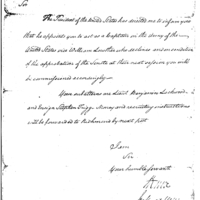 Sir
The President of the United States has directed me to inform you
that he appoints you to act as a Captain in the army of the
United States vice William Lowther who declines and on condition
of the approbation of the Senate at their next session you will
be commissioned accordingly.
Your subalterns are Lieut Benjamin Lockwood
and Ensign Stephen Trigg. Money and recruiting instructions
will be forwarded to Richmond by next Post
I am
Sir
Your humble servant